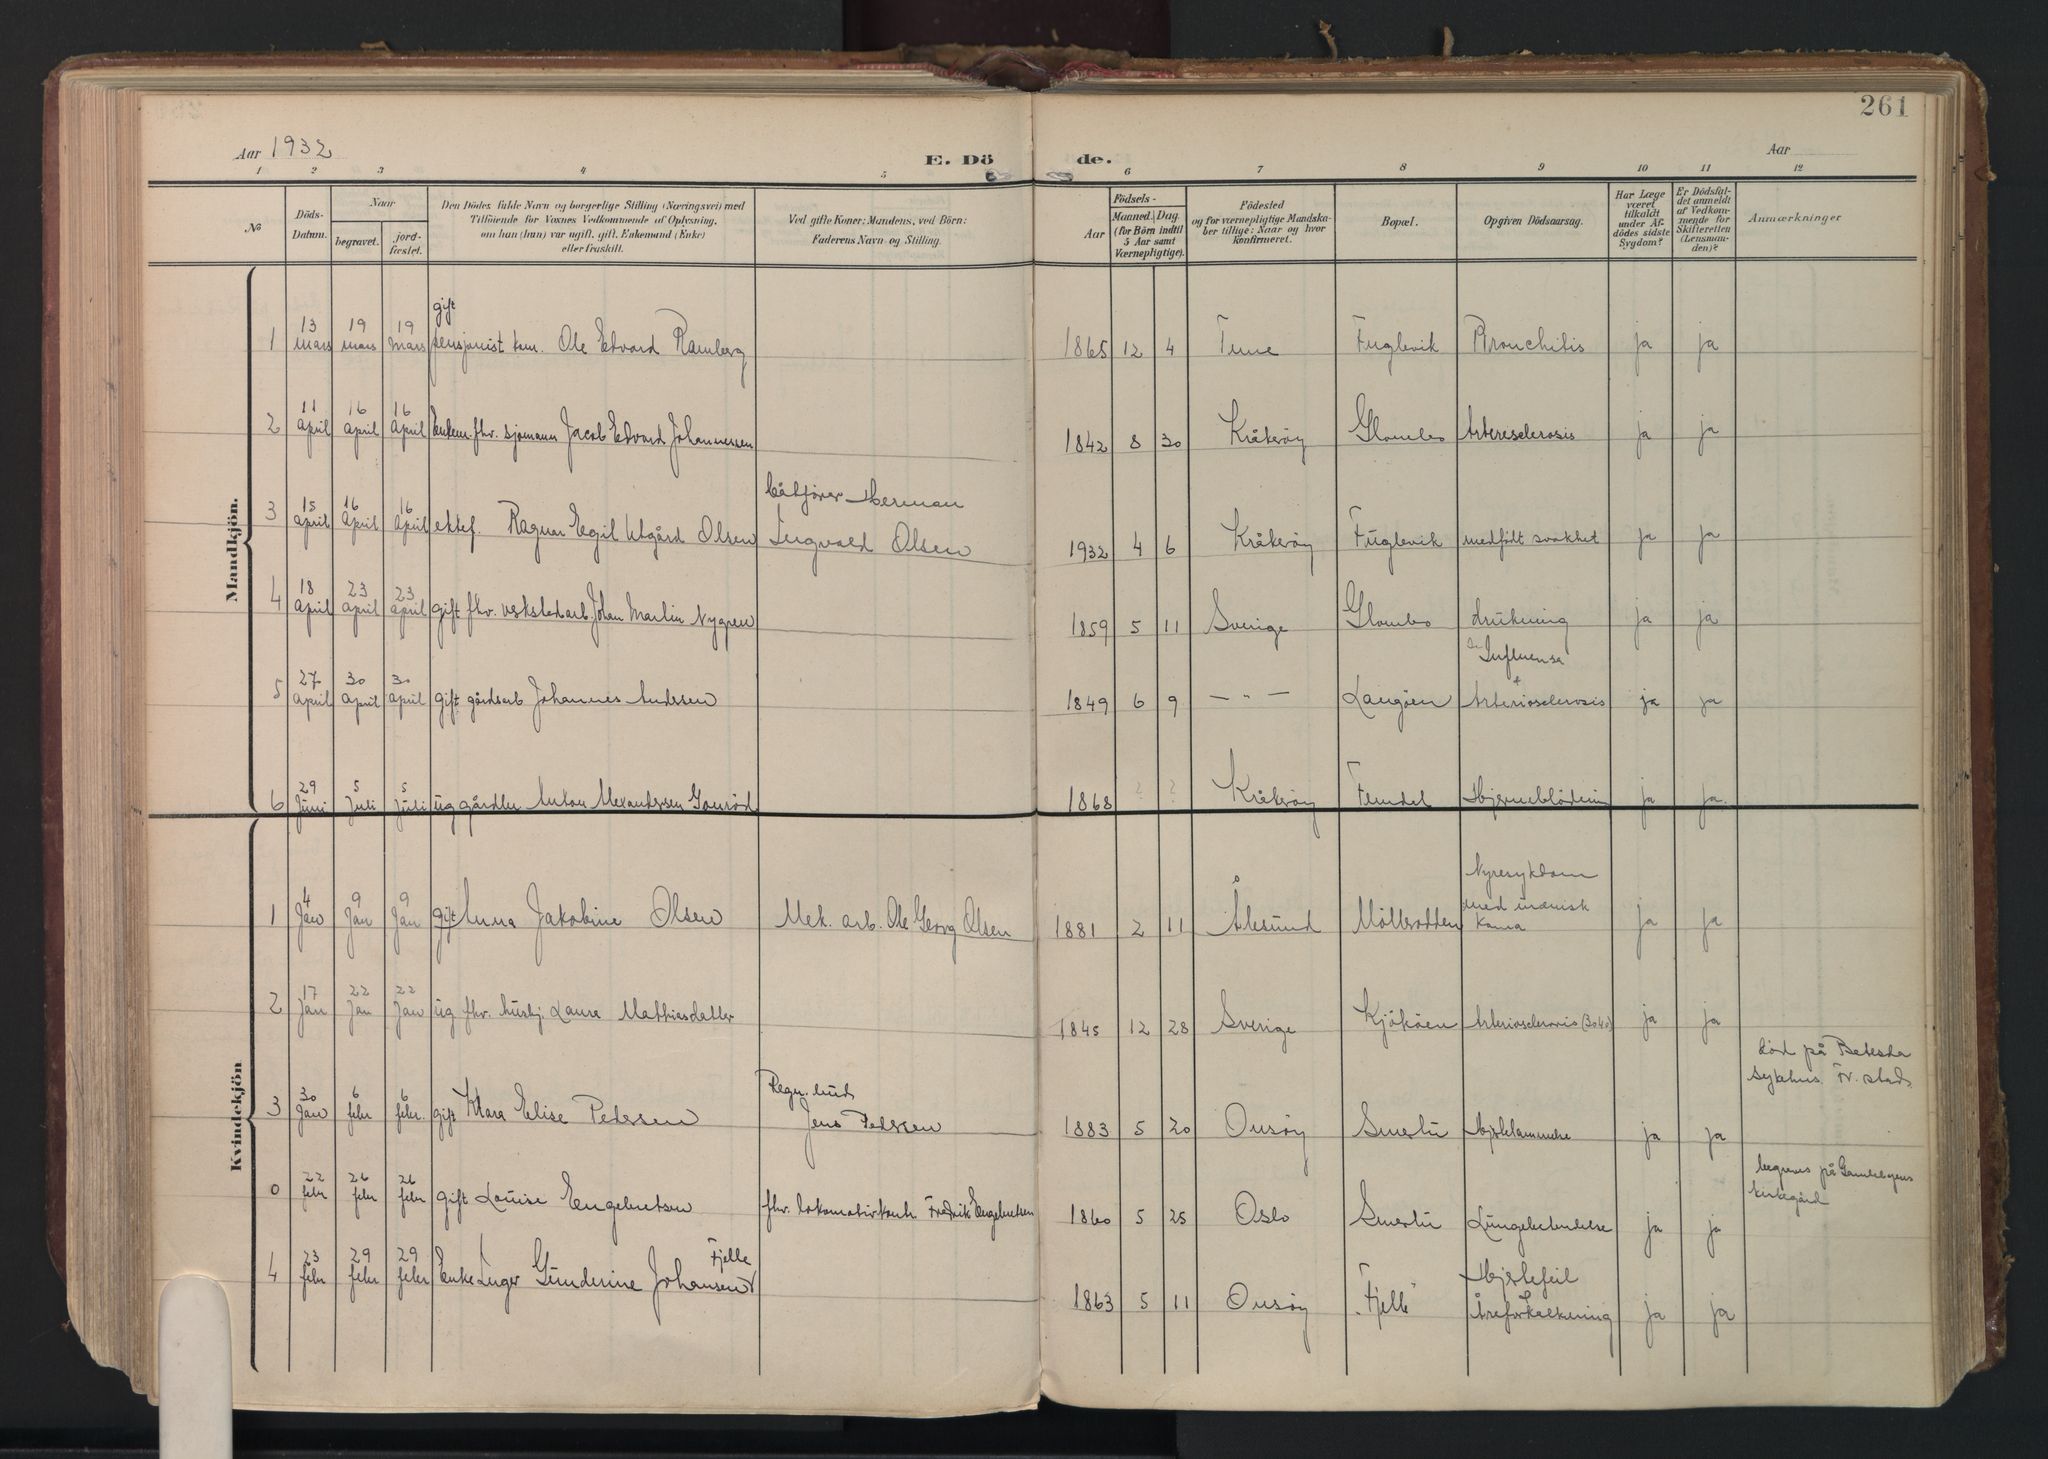 261
Aar 1932
E. Döde.
Aar
1 2 3 4 5 6 7 8 9 10 11 12
No
Döds-Datum.
Naar
begravet.
jordfæstet.
Den Dödes fulde Navn og borgerlige Stilling (Næringsvei) med
Tilföiende for Voxnes Vedkommende af Oplysning,
om han (hun) var ugift, gift, Enkemand (Enke)
eller fraskilt.
Ved gifte Koner: Mandens, ved Börn:
Faderens Navn og Stilling.
Födsels-
Aar
Maaned. Dag.
(for Börn indtil
5 Aar samt
Værnepligtige).
Födested
og for værnepligtige Mandska-
ber tillige: Naar og hvor
konfirmeret.
Bopæl.
Opgiven Dödsaarsag.
Har Læge
været
tilkaldt
under Af-
dödes sidste
Sygdom?
Er Dödsfal-
det anmeldt
af Vedkom-
mende for
Skifteretten
(Lensman-
den)?
Anmærkninger
Mandkjön.
gift
1 13 mars 19 mars 19 mars pensjonist kom. Ole Edvard Ramberg 1865 12 4 Tune Fuglevik Bronchitis ja ja
2 11 April 16 April 16 April Enkem. fhv. sjømann Jacob Edvard Johannessen 1842 8 30 Kråkerøy Glombo Arteriesclerosis ja ja
båtfører Herman
3 15 April 16 April 16 April ektef. Ragnar Egil Utgård Olsen Ingvald Olsen 1932 4 6 Kråkerøy Fuglevik medfødt svakhet ja ja
4 18 April 23 April 23 April gift fhv. verkstedarb. Johan Martin Nygren 1859 5 11 Sverige Glombo drukning ja ja
Influensa
+
5 27 April 30 April 30 April gift gårdsarb Johannes Andersen 1849 6 9 — „ — Langøen Arteriosclerosis ja ja
6 29 Juni 5 Juli 5 Juli ug gårdbr Anton Alexandersen 1868 ? ? Kråkerøy Femdal Hjerneblødning ja ja
Kvindekjön
Nyresykdom
med uræmisk
1 4 Jan 9 Jan 9 Jan gift Anna Jakobine Olsen Mek. arb. Ole Georg Olsen 1881 2 11 Ålesund Møllerodden Koma ja ja
2 17 Jan 22 Jan 22 Jan ug fhv. hushj. Laura Mathiasdatter 1845 12 28 Sverige Kjøkøen Arteriosclerosis (3040) ja ja
død på Betesda
sykehus Fr.stad
3 30 Jan 6 febr 6 febr. gift Klara Elise Pedersen Regn. bud Jens Pedersen 1883 5 20 Onsøy Smertu Hjertelammelse ja ja
begraves på Gamlebyens
kirkegård
0 22 febr 26 febr 26 febr gift Louise Engebretsen fhv. lokomotivkonh. Fredrik Engebretsen 1860 5 25 Oslo Smertu Lungebetendelse ja ja
Fjelle Hjertefeil
4 23 febr 29 febr 29 febr Enke Inger Gunderine Johansen 1863 5 11 Onsøy "Fjelle" Åreforkalkning ja ja